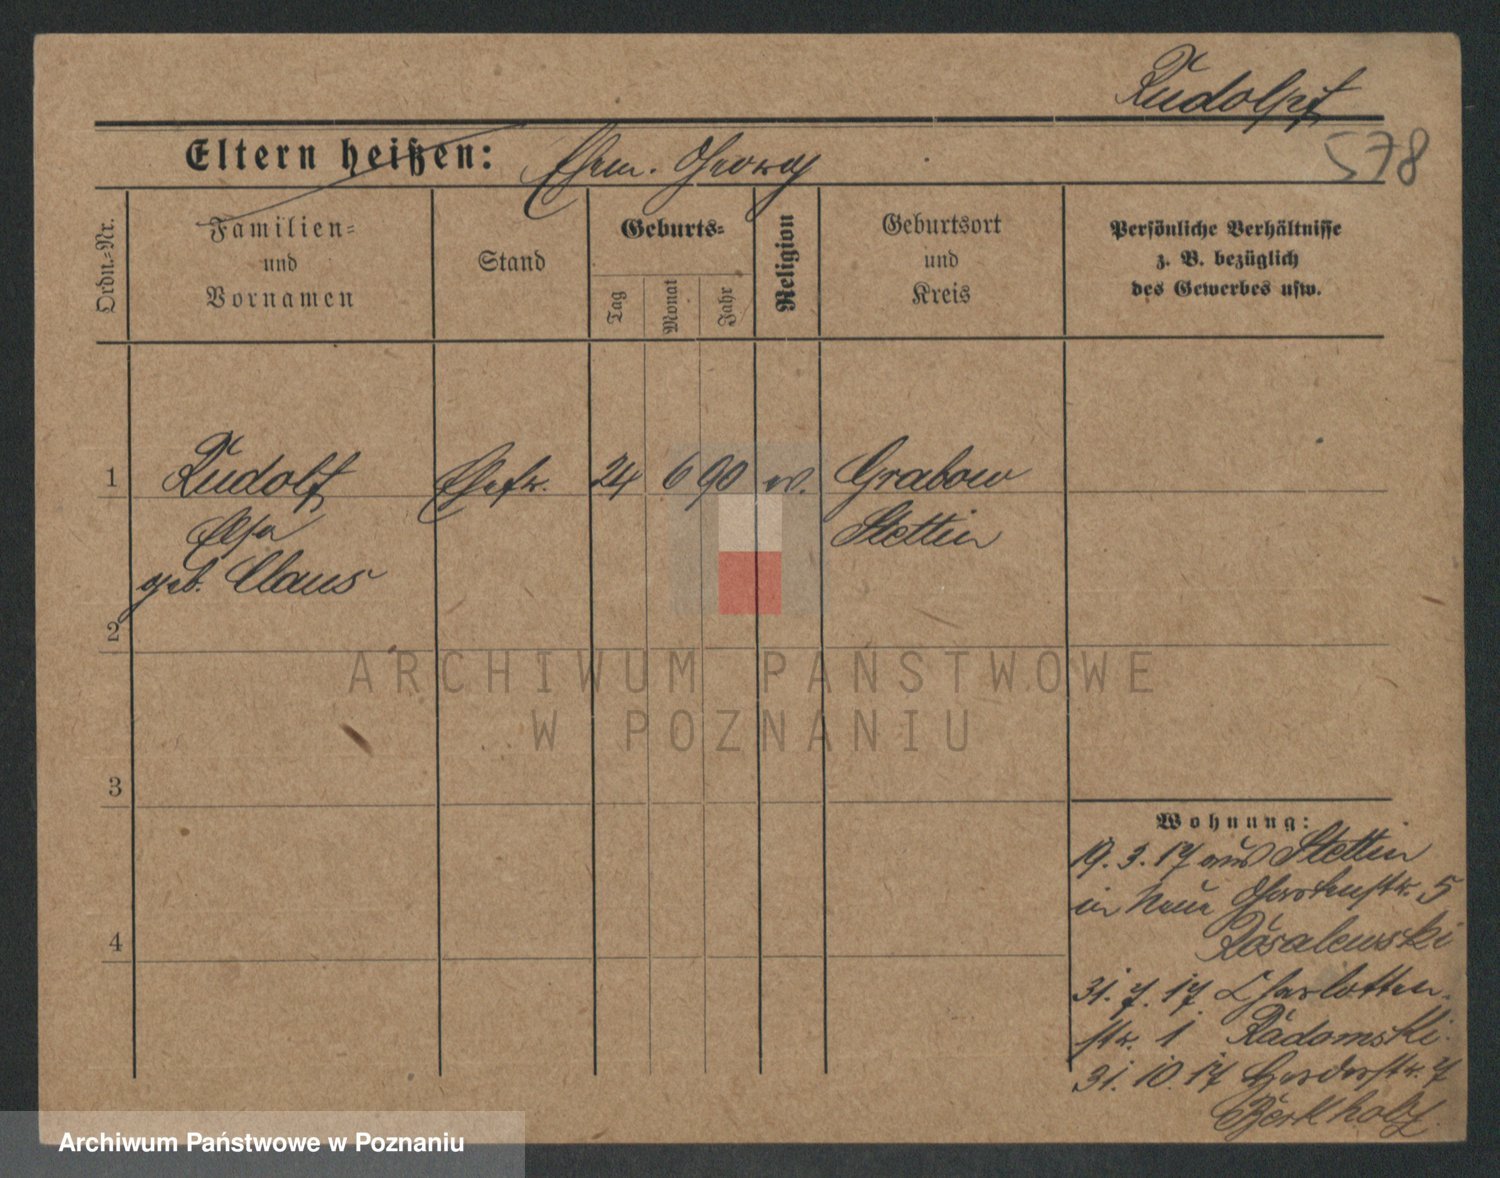 Rudolph
578
Eltern heißen: Ehem. Georg
Ordn.-Nr.
Familien-
und
Vornamen
Stand
Geburts-
Tag
Monat
Jahr
Religion
Geburtsort
und
Kreis
Persönliche Verhältnisse
z. B. bezüglich
des Gewerbes usw.
1 Rudolf Ehefr. 24 6 90 ev. Grabow
Elsa Stettin
geb. Claus
2
ARCHIWUM PAŃSTWOWE
W POZNANIU
3
Wohnung:
19. 3. 17 aus Stettin
in Neue Gartenstr. 5
Rosalewski
4
31. 7. 17 Charlotten-
str. 1 Radomski.
31. 10. 17 Herderstr. 7
Berkholz
Archiwum Państwowe w Poznaniu